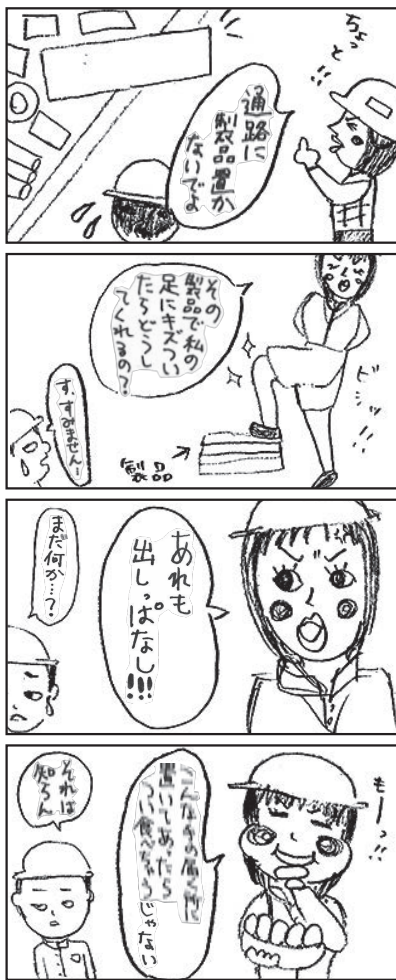 ちょっと!!
通路に
製品置か
ないでよ
その
製品で私の
足にキズつい
たらどうし
てくれるの?
ビシッ!!
す、すみません!
製品
あれも
出しっぱなし!!!
まだ何か…?
もーっ!!
こんな手の届く所に
置いてあったら
つい食べちゃうじゃない
それは
知らん